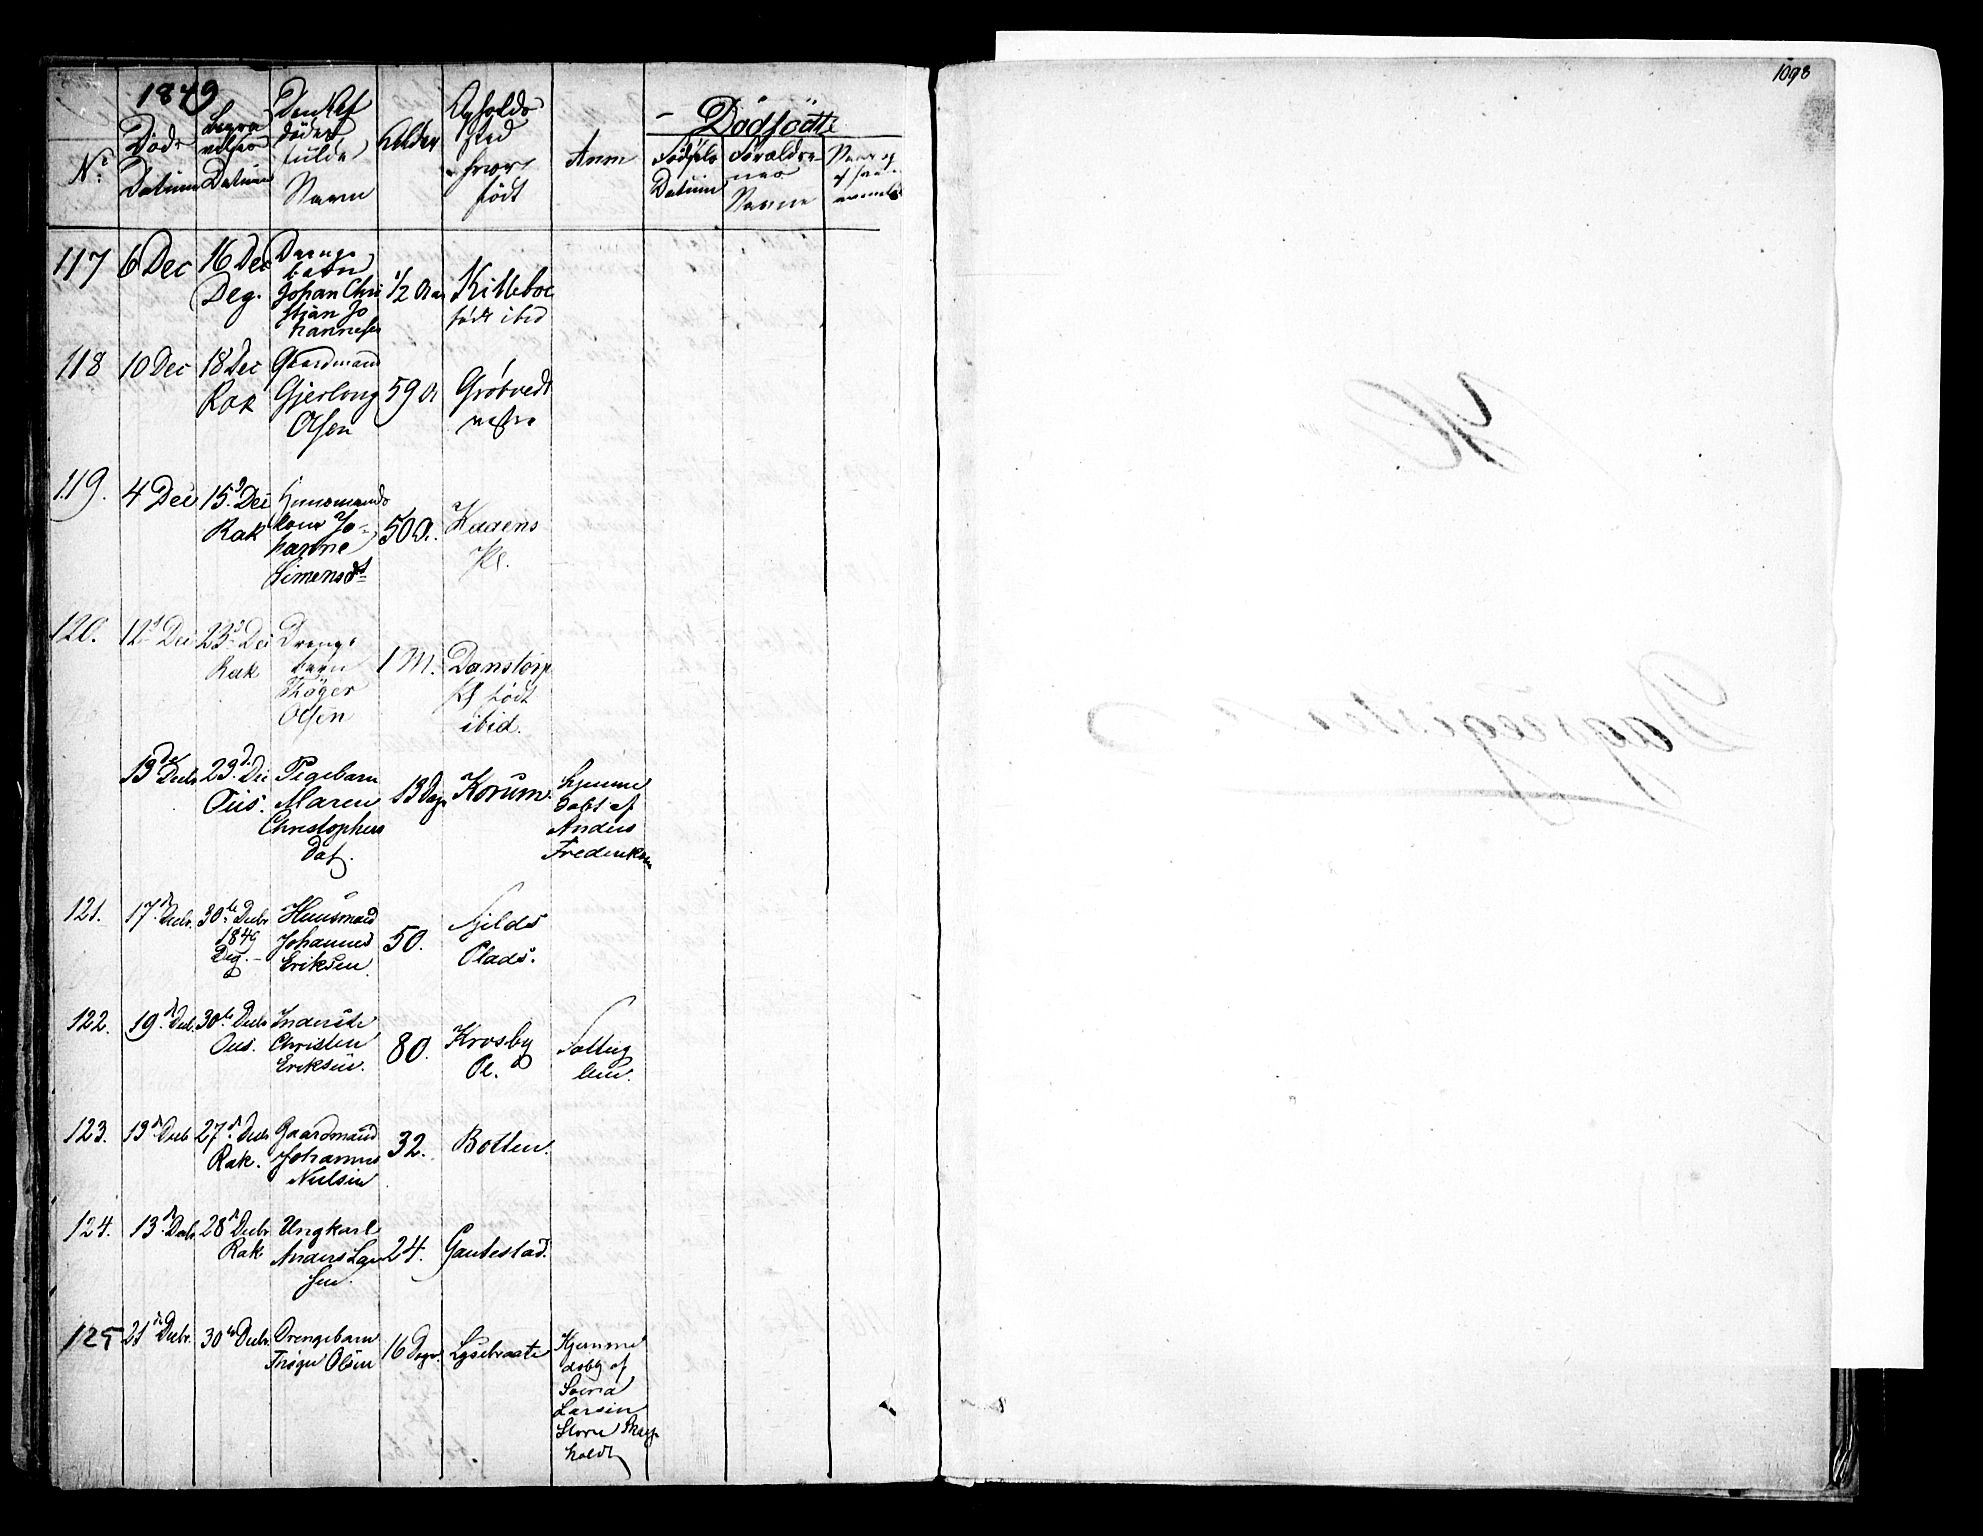 1098
1849
Dødfødte
No
Døds
Datum
Begra
velses
Datum
Den Af
dødes
fulde
Navn
Alder
Opholds
sted
hvor
født
Anm
Fødsels
Datum
Forældre-
nes
Navne
117 6 Dec 16 Dec
Deg.
Drenge
barn
Johan Chri
stian Jo
hannesen
1/2 Aar
Killeboe
født ibid
118 10 Dec 18 Dec
Rak
Gaardmand
Gjerlong
Olsen
59 A.
Grötvedt
119. 4 Dec 15d Dec
Rak
Huusmands
kone Jo-
hanne
Simensdt
50 A.
Kaaens
Pl.
120. 12d Dec 23d Dec
Rak
Drenge
barn
Thöger
Olsen
1 M.
Danstorp
født
ibid.
13de Decbr 23d. Dec
Ous.
Pigebarn
Maren
Christophers
Dat.
13 Dage
Korum.
hjemme
døbt af
Anders
Frederiksen
121. 17d Decbr. 30te Decbr
1849
Deg.
Huusmand
Johannes
Eriksen.
50.
Fjelds
Plads.
122. 19d Decbr. 30te Decbr
Ous.
Inderste
Christen
Eriksen.
80.
Krosby
Pl.
Fattig
lem.
123. 13d Decbr 27d Decbr
Rak.
Gaardmand
Johannes
Nielsen
32.
Botten.
124. 13d Decbr 28d Decbr
Rak
Ungkarl
Anders Lar
sen.
24.
Gautestad.
125 21d Decbr. 30te Decbr
Drengebarn
Thøger Olsen
16 Dage.
Lysebraate
Hjemme
døbt af
Larsen
Store
holdt